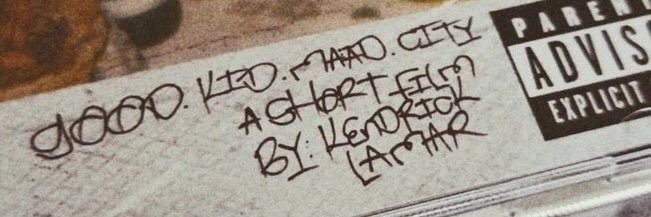 gOOD. KID. MAAD. CITY
A SHORT FILM
BY: KENDRICK
LAMAR
PAREN
ADVIS
EXPLICIT